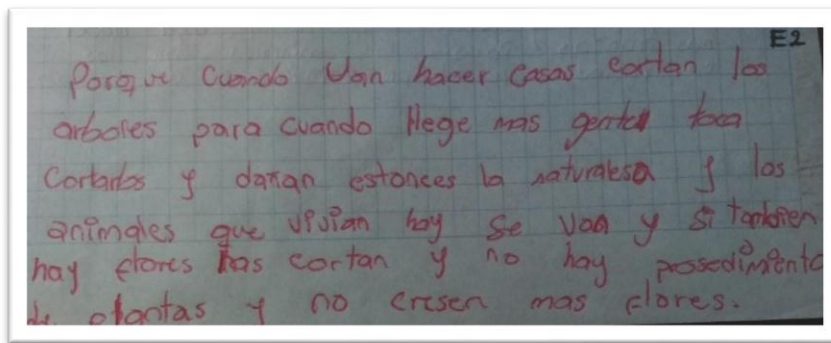 E2
Porque cuando van hacer casas cortan los
arboles para cuando llege mas gente toca
cortarlos y dañan estonces la naturalesa y los
animales que vivian hay se van y si tambien
hay flores las cortan y no hay prosedimento
de plantas y no cresen mas flores.